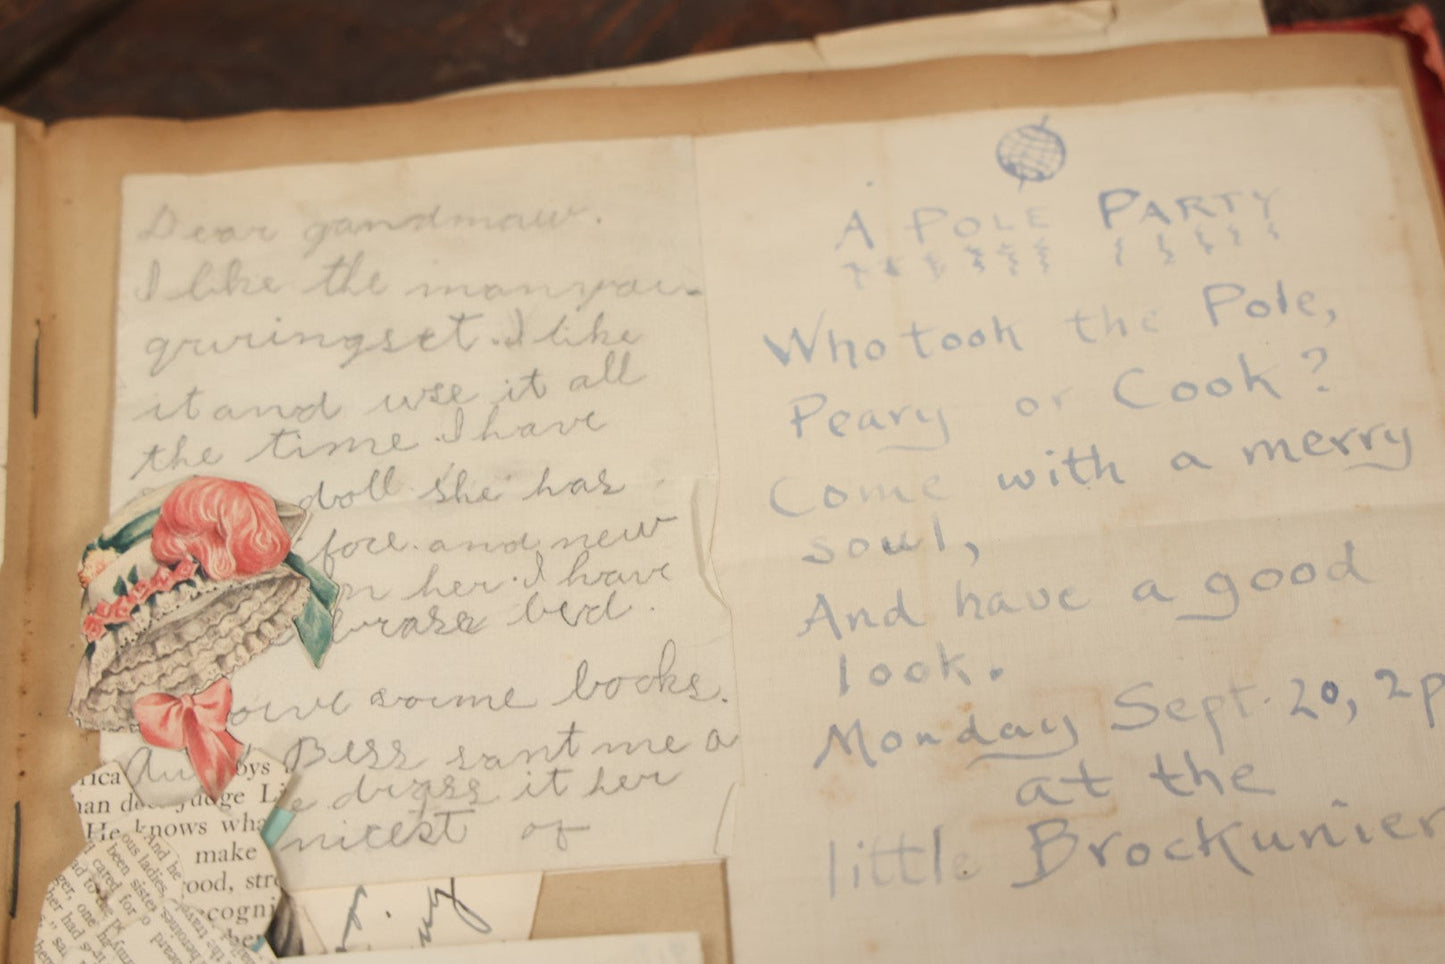 Dear gandmaw.
I like the manyau-
qruringset. I like
it and use it all
the time. I have
doll she has
face. and new
n her. I have
brass bed.
some books.
Aunt Bess sant me a
e dress it her
nicest of
A POLE PARTY
Who took the Pole,
Peary or Cook?
Come with a merry
soul,
And have a good
look.
Monday Sept. 20, 2p
at the
little Brockunier
rica
oys
han
Judge Li
He knows wha
make
ood, stre
ecogni
And he
ous ladies,
been sister
cared for
ger, one
her had